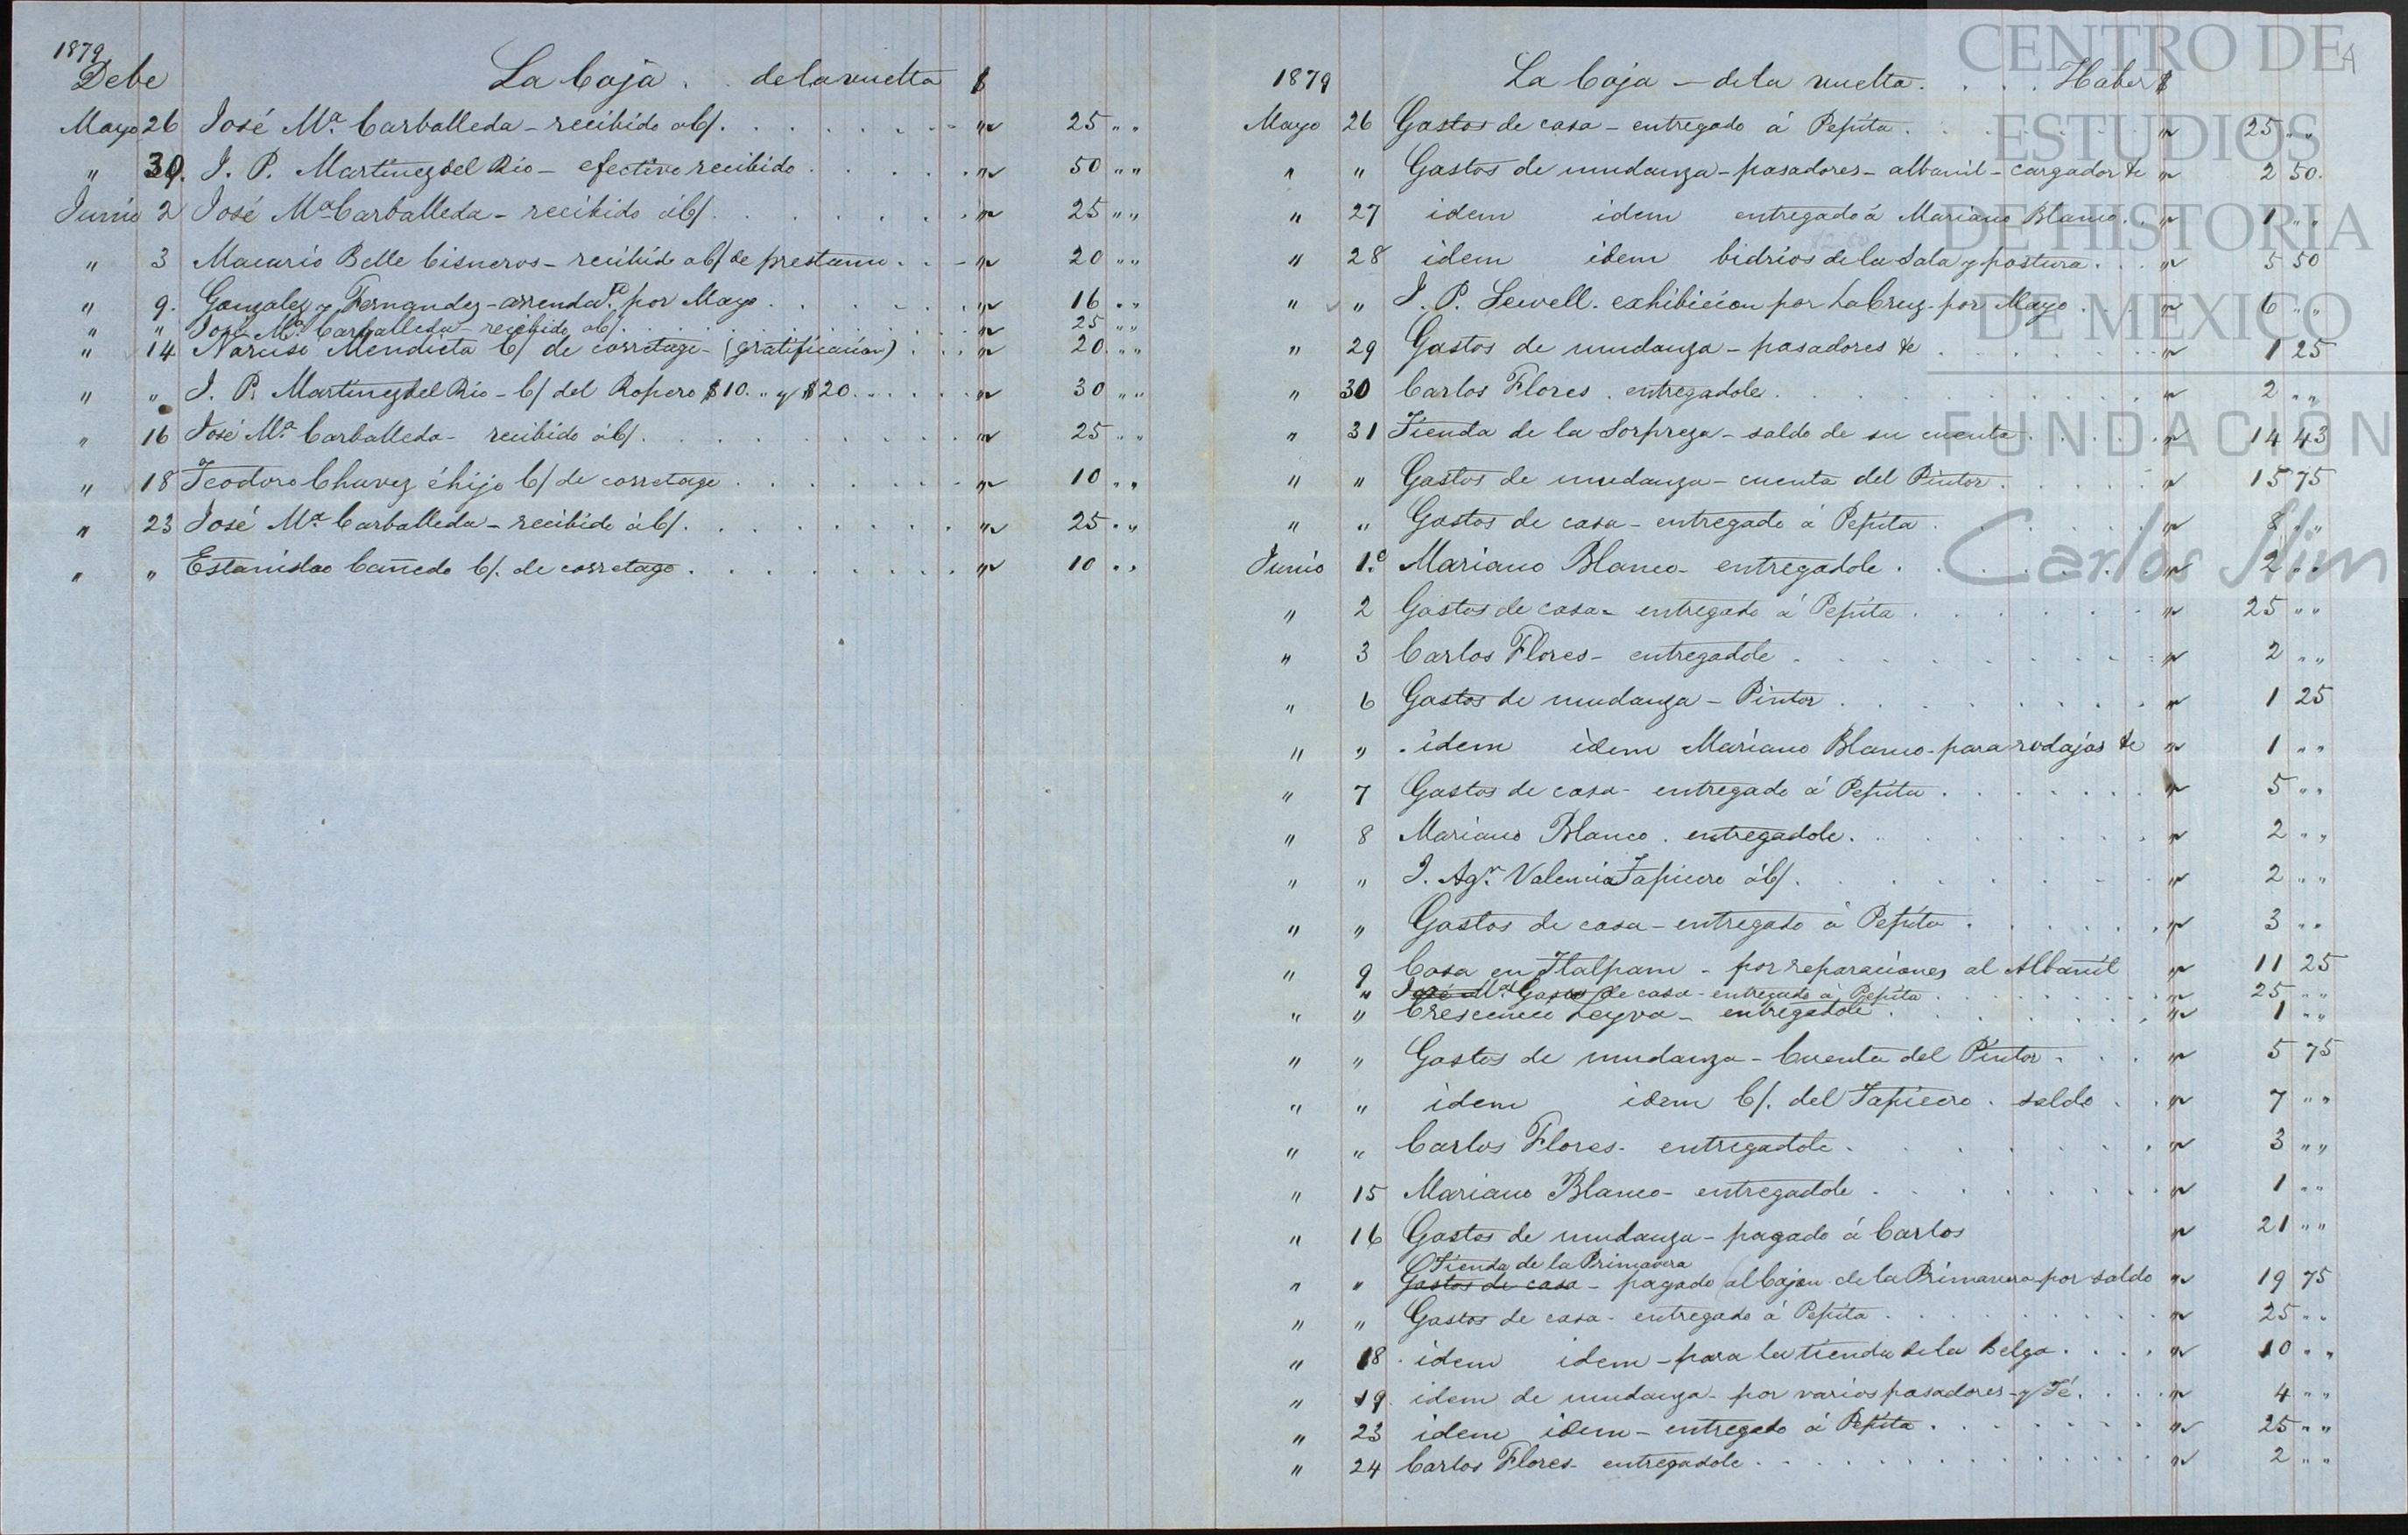 1879
Debe La Caja . . de la vuelta $
Mayo 26 José Mª. Carballeda - recibido á c/. 25 " "
" 30. J. P. Martinez del Rio - efectivo recibido 50 " "
Junio 2 José Mª Carballeda - recibido á c/. 25 " "
" 3 Macario Belle Cisneros - recibido á c/ de prestamo 20 " "
" 9. Gonzalez y Fernandez - arrendaTo. por Mayo 16 " "
" " José Mª Carballeda - recibido á c/. 25 " "
" 14 Narciso Mendieta C/ de corretage - (gratificacion) 20 " "
" " J. P. Martinez del Rio - C/ del Ropero $10. " y $20 30 " "
" 16 José Mª. Carballeda - recibido á c/. 25 " "
" 18 Teodoro Chavez é hijo C/ de corretage 10 " "
" 23 José Mª. Carballeda - recibido á c/. 25 " "
" " Estanislao Cañedo C/. de corretage 10 " "
1879 La Caja - de la vuelta . . . . Haber $
Mayo 26 Gastos de casa - entregado á Pepita 25 " "
" " Gastos de mudanza - pasadores - albanil - cargador &c 2 50.
" 27 idem idem entregado á Mariano Blanco 1 " "
" 28 idem idem bidrios de la Sala y postura 5 50
" " J. P. Sewell. exhibicion por La Cruz. por Mayo 6 " "
" 29 Gastos de mudanza - pasadores &c 1 25
" 30 Carlos Flores . entregadole 2 " "
" 31 Tienda de la Sorpreza - saldo de su cuenta 14 43
" " Gastos de mudanza - cuenta del Pintor 15 75
" " Gastos de casa - entregado á Pepita 8 " "
Junio 1.º Mariano Blanco - entregadole 2 " "
" 2 Gastos de casa - entregado á Pepita 25 " "
" 3 Carlos Flores - entregadole 2 " "
" 6 Gastos de mudanza - Pintor 1 25
" " . idem idem Mariano Blanco - para rodajas &c 1 " "
" 7 Gastos de casa - entregado á Pepita 5 " "
" 8 Mariano Blanco . entregadole 2 " "
" " J. Agn. Valencia Tapicero á c/. 2 " "
" " Gastos de casa - entregado á Pepita 3 " "
" 9 Casa en Tlalpam - por reparaciones al Albanil 11 25
" José Mª. Gastos de casa - entregado á Pepita 25 " "
" " Crescencio Leyva - entregadole 1 " "
" " Gastos de mudanza - Cuenta del Pintor 5 75
" " idem idem C/. del Tapicero . saldo 7 " "
" " Carlos Flores - entregadole 3 " "
" 15 Mariano Blanco - entregadole 1 " "
" 16 Gastos de mudanza - pagado á Carlos 21 " "
Tienda de la Primavera
" " Gastos de casa - pagado al Cajon de la Primavera por saldo 19 75
" " Gastos de casa - entregado á Pepita 25 " "
" 18 . idem idem - para la tienda de la Belga 10 " "
" 19 . idem de mudanza - por varios pasadores - y Té. 4 " "
" 23 idem idem - entregado á Pepita 25 " "
" 24 Carlos Flores - entregadole 2 " "
CENTRO DE
ESTUDIOS
DE HISTORIA
DE MEXICO
FUNDACIÓN
Carlos Slim